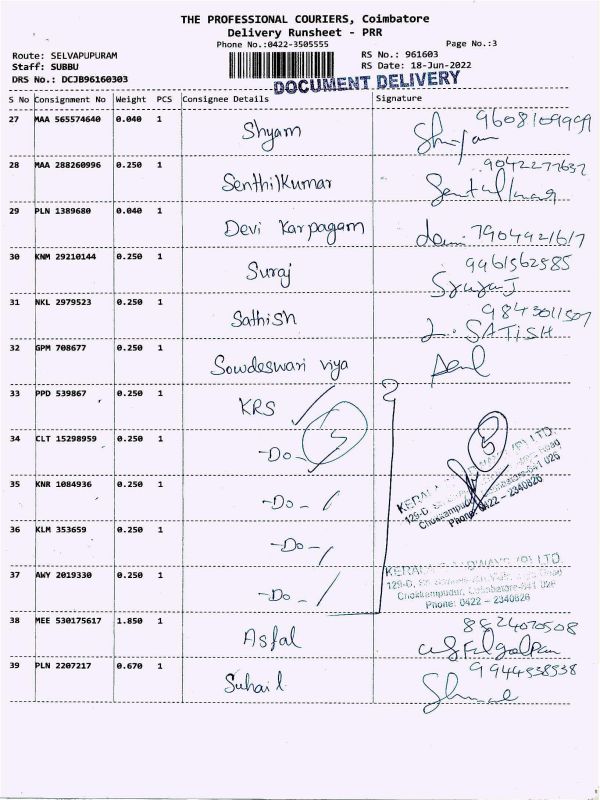 THE PROFESSIONAL COURIERS, Coimbatore
Delivery Runsheet - PRR
Phone No.:0422-3505555
Page No.:3
Route: SELVAPUPURAM
RS No.: 961603
Staff: SUBBU
RS Date: 18-Jun-2022
DRS No.: DCJB96160303
DOCUMENT DELIVERY
S No Consignment No Weight PCS Consignee Details Signature
27 MAA 565574640 0.040 1 Shyam
28 MAA 288260996 0.250 1 Senthilkumar
9042277637
29 PLN 1389680 0.040 1 Devi Karpagam
7904921617
30 KNM 29210144 0.250 1 Suraj
9961562585
31 NKL 2979523 0.250 1 Sathish
9843011507
L. SATISH
32 GPM 708677 0.250 1 Sowdeswari viya
33 PPD 539867 0.250 1 KRS
34 CLT 15298959 0.250 1 -Do-
5
5
35 KNR 1084936 0.250 1 -Do-
36 KLM 353659 0.250 1 -Do-
37 AWY 2019330 0.250 1 -Do-
KERALA ROADWAYS (P) LTD
Chokkampudur, Coimbatore-641 026
Phone: 0422 - 2340826
KERALA ROADWAYS (P) LTD
Chokkampudur, Coimbatore-641 026
Phone: 0422 - 2340826
38 MEE 530175617 1.850 1 Asfal
8824070508
39 PLN 2207217 0.670 1 Suhail
9944538538